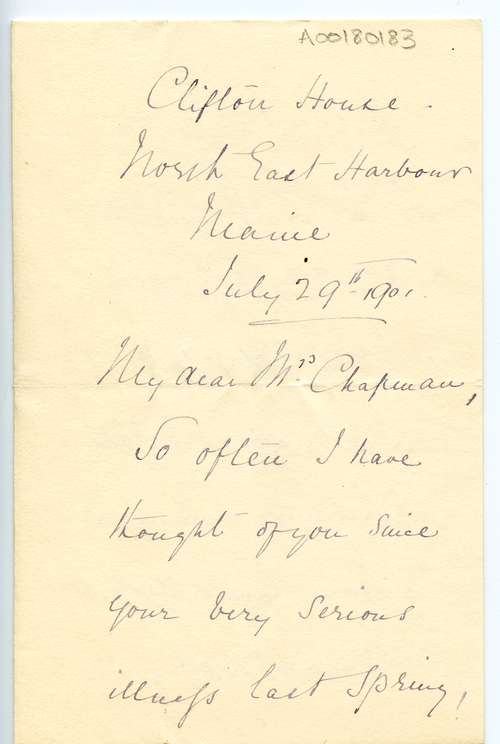 A00180183
Clifton House -
North East Harbour
Maine
July 29th 1901.
My dear Mrs Chapman,
So often I have
thought of you since
your very serious
illness last Spring,